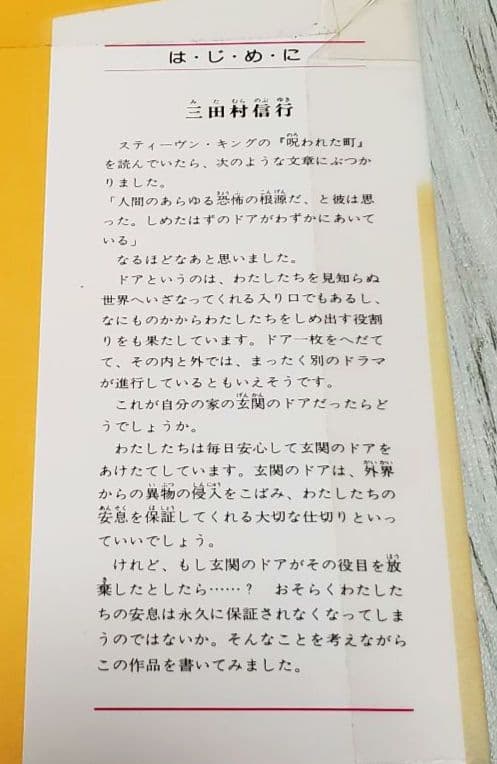 は・じ・め・に
三田村信行
スティーヴン・キングの『呪われた町』
を読んでいたら、次のような文章にぶつか
りました。
「人間のあらゆる恐怖の根源だ、と彼は思
った。しめたはずのドアがわずかにあいて
いる」
なるほどなあと思いました。
ドアというのは、わたしたちを見知らぬ
世界へいざなってくれる入り口でもあるし、
なにものかからわたしたちをしめ出す役割
りをも果たしています。ドア一枚をへだて
て、その内と外では、まったく別のドラマ
が進行しているともいえそうです。
これが自分の家の玄関のドアだったらど
うでしょうか。
わたしたちは毎日安心して玄関のドアを
あけたてしています。玄関のドアは、外界
からの異物の侵入をこばみ、わたしたちの
安息を保証してくれる大切な仕切りといっ
ていいでしょう。
けれど、もし玄関のドアがその役目を放
棄したとしたら……？　おそらくわたした
ちの安息は永久に保証されなくなってしま
うのではないか。そんなことを考えながら
この作品を書いてみました。